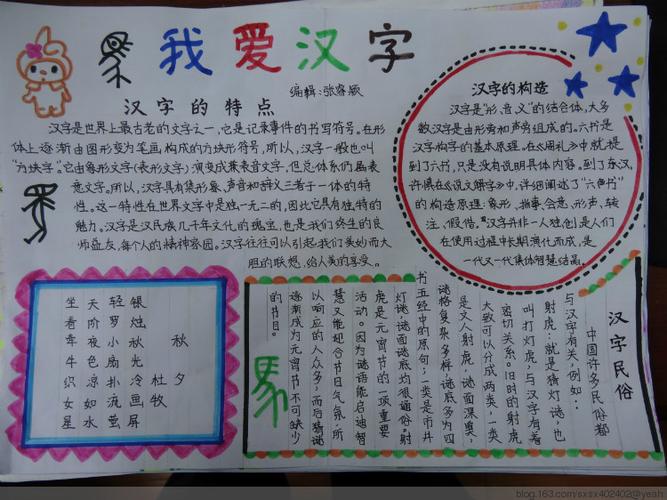 我爱汉字
编辑:张
汉字的特点
汉字是世界上最古老的文字之一,它是记录事件的书写符号。在形
体上逐渐由图形变为笔画构成的方块形符号。所以,汉字一般也叫
"方块字"。它由象形文字(表形文字)演变成兼表音文字,但总体系仍属表
意文字。所以,汉字具有集形象、声音和辞义三者于一体的特
性。这一特性在世界文字中是独一无二的,因此它具有独特的
魅力。汉字是汉民族几千年文化的瑰宝,也是我们终生的良
师益友,每个人的精神家园。汉字往往可以引起我们美妙而大
胆的联想,给人美的享受。
汉字的构造
汉字是"形、音、义"的结合体,大多
数汉字是由形旁和声旁组成的。六书是
汉字构字的基本原理,在《周礼》中就提
到了六书,只是没有说明具体内容。到了东汉,
许慎在《说文解字》中,详细阐述了"六书"
的构造原理:象形、指事、会意、形声、转
注、假借。汉字并非一人独创,是人们
在使用过程中长期演化而成,是
一代又一代集体智慧结晶。
秋夕
杜牧
银烛秋光冷画屏
轻罗小扇扑流萤
天阶夜色凉如水
坐看牵牛织女星
汉字民俗
中国许多民俗都
与汉字有关,例如:
射虎,就是猜灯谜,也
叫打灯虎,与汉字有着
密切关系。旧时的射虎
大致可以分成两类,一类
是文人射虎,谜面深奥,
谜格复杂多样,谜底多为四
书五经中的原句;一类是市井
灯谜,谜面谜底均很通俗。射
虎是元宵节的一项重要
活动。因为谜语能启迪智
慧又能迎合节日气氛,所
以响应的人众多,而后猜谜
逐渐成为元宵节不可缺少
的节目。
blog.163.com/sxsx402402@yeah